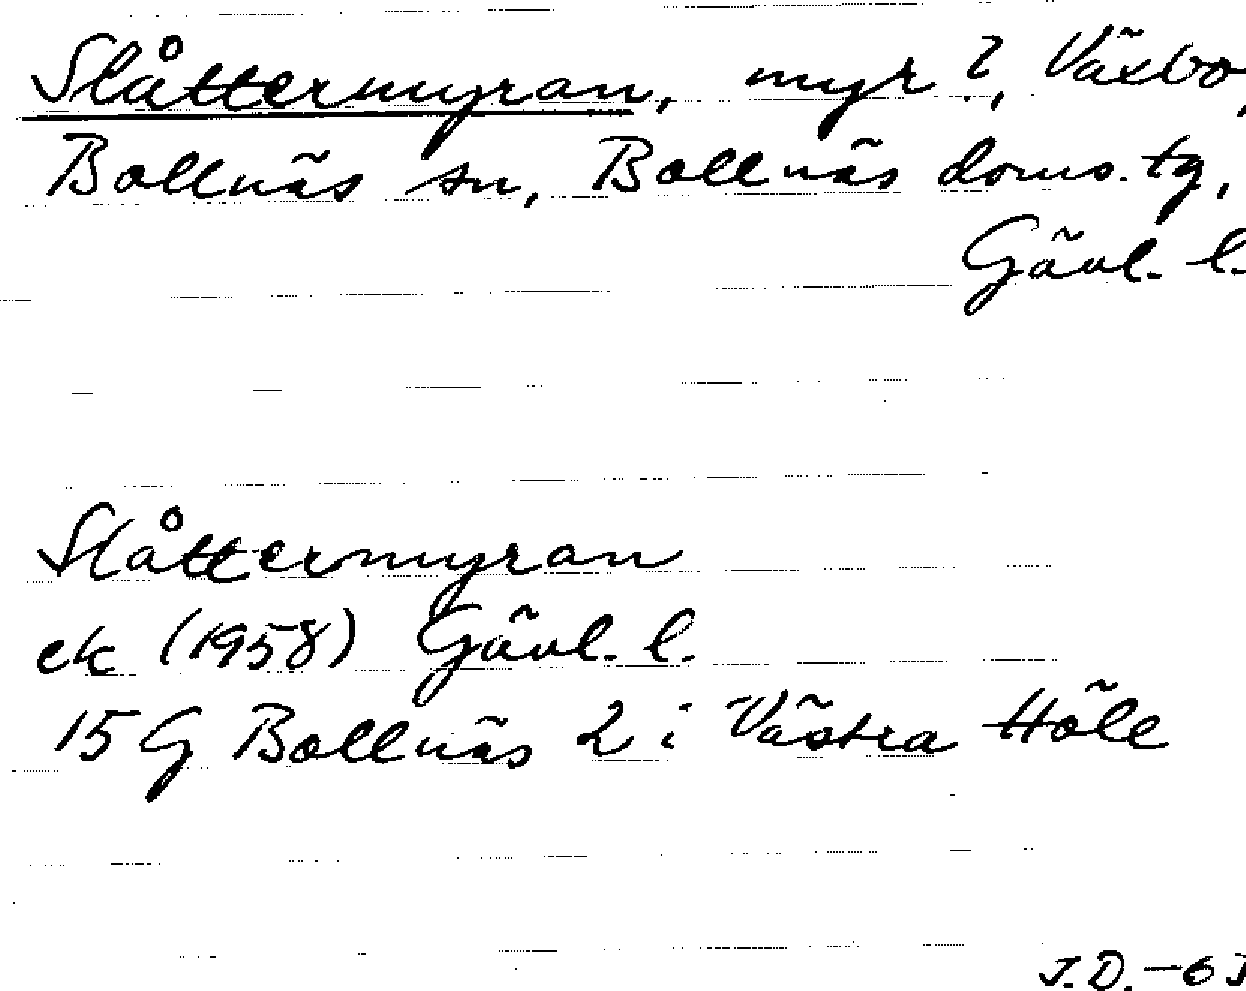 Slåttermyran, myr?, Växbo,
Bollnäs sn, Bollnäs doms. tg,
Gävl. l.
Slåttermyran
ek (1958) Gävl. l.
15 G Bollnäs 2 i Västra Höle
J.D. -63